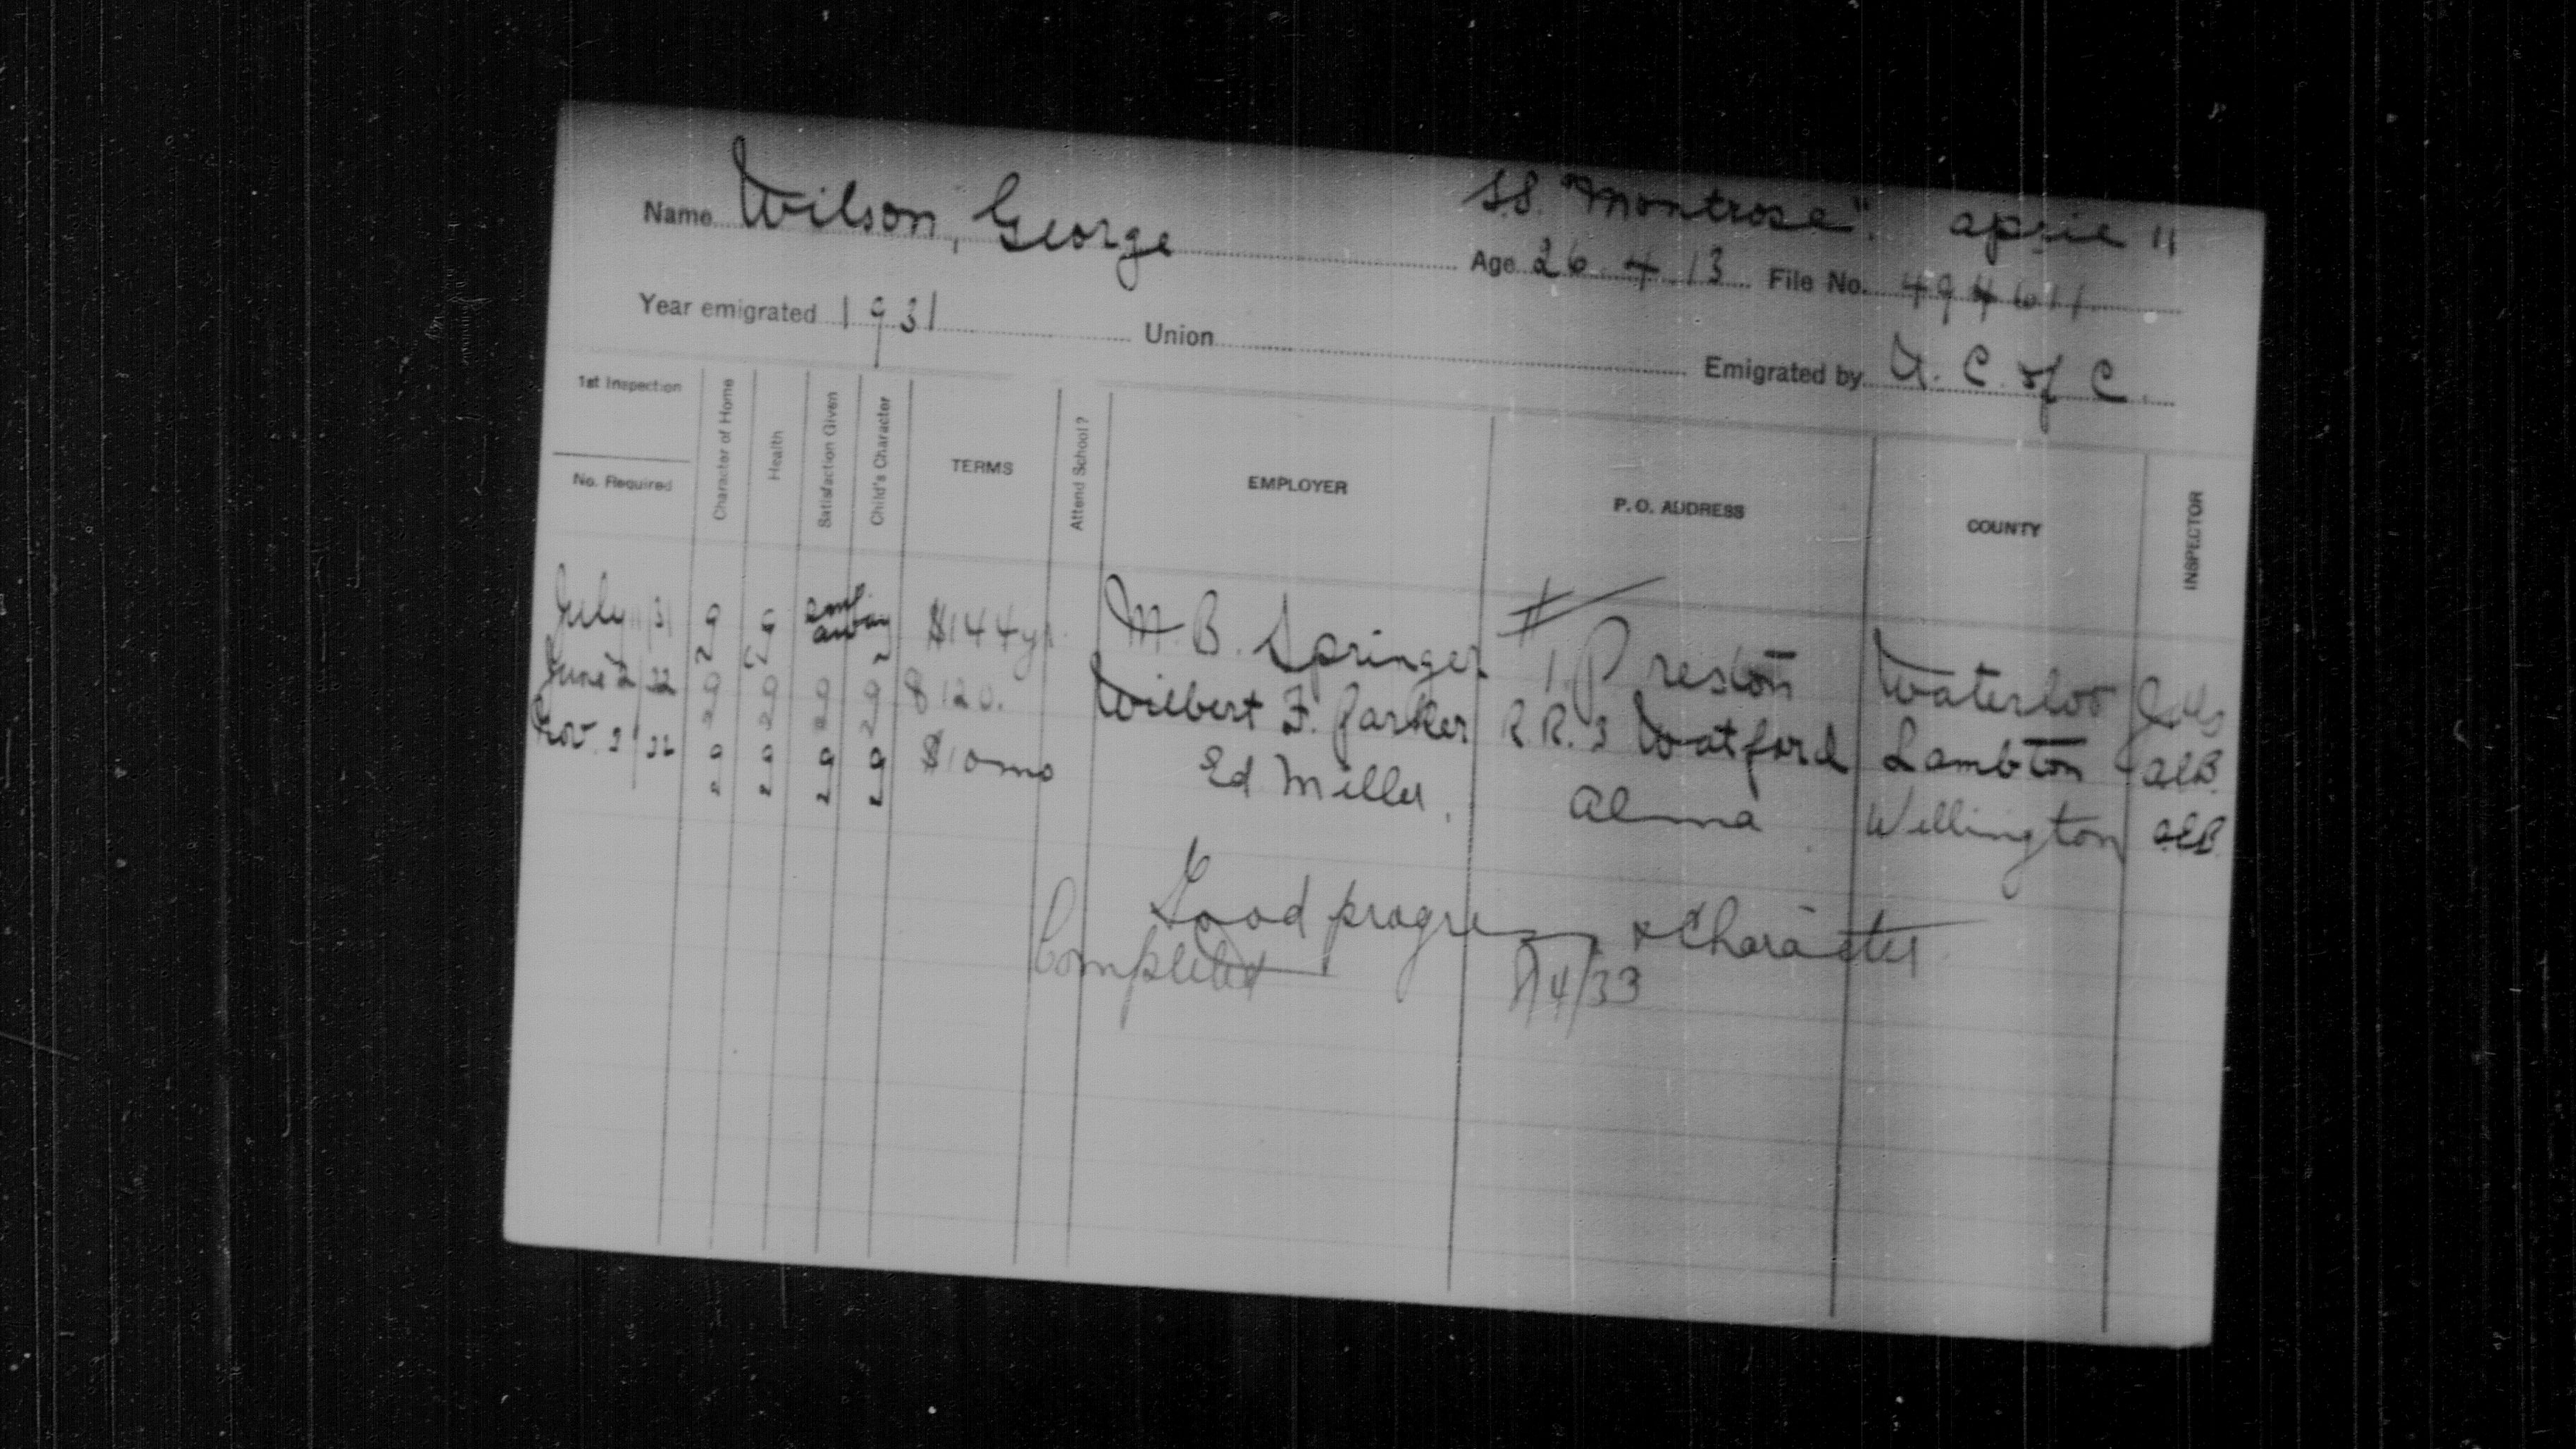 S.S. "Montrose". April 11
Name Wilson, George Age 26.4.13 File No. 494611
Year emigrated 1931 Union Emigrated by U. C. of C.
1st Inspection
No. Required
Character of Home
Health
Satisfaction Given
Child's Character
TERMS
Attend School?
EMPLOYER
P. O. ADDRESS
COUNTY
INSPECTOR
July 31 g g away g $144 yr. M. B. Springer #1. Preston Waterloo
June 2 32 g g g g $120. Wilbert F. Parker R. R. 3 Watford Lambton
Nov. 32 g g g g $10 mo Ed Miller. Alma Wellington
Good progress & Character
Completed 4/33